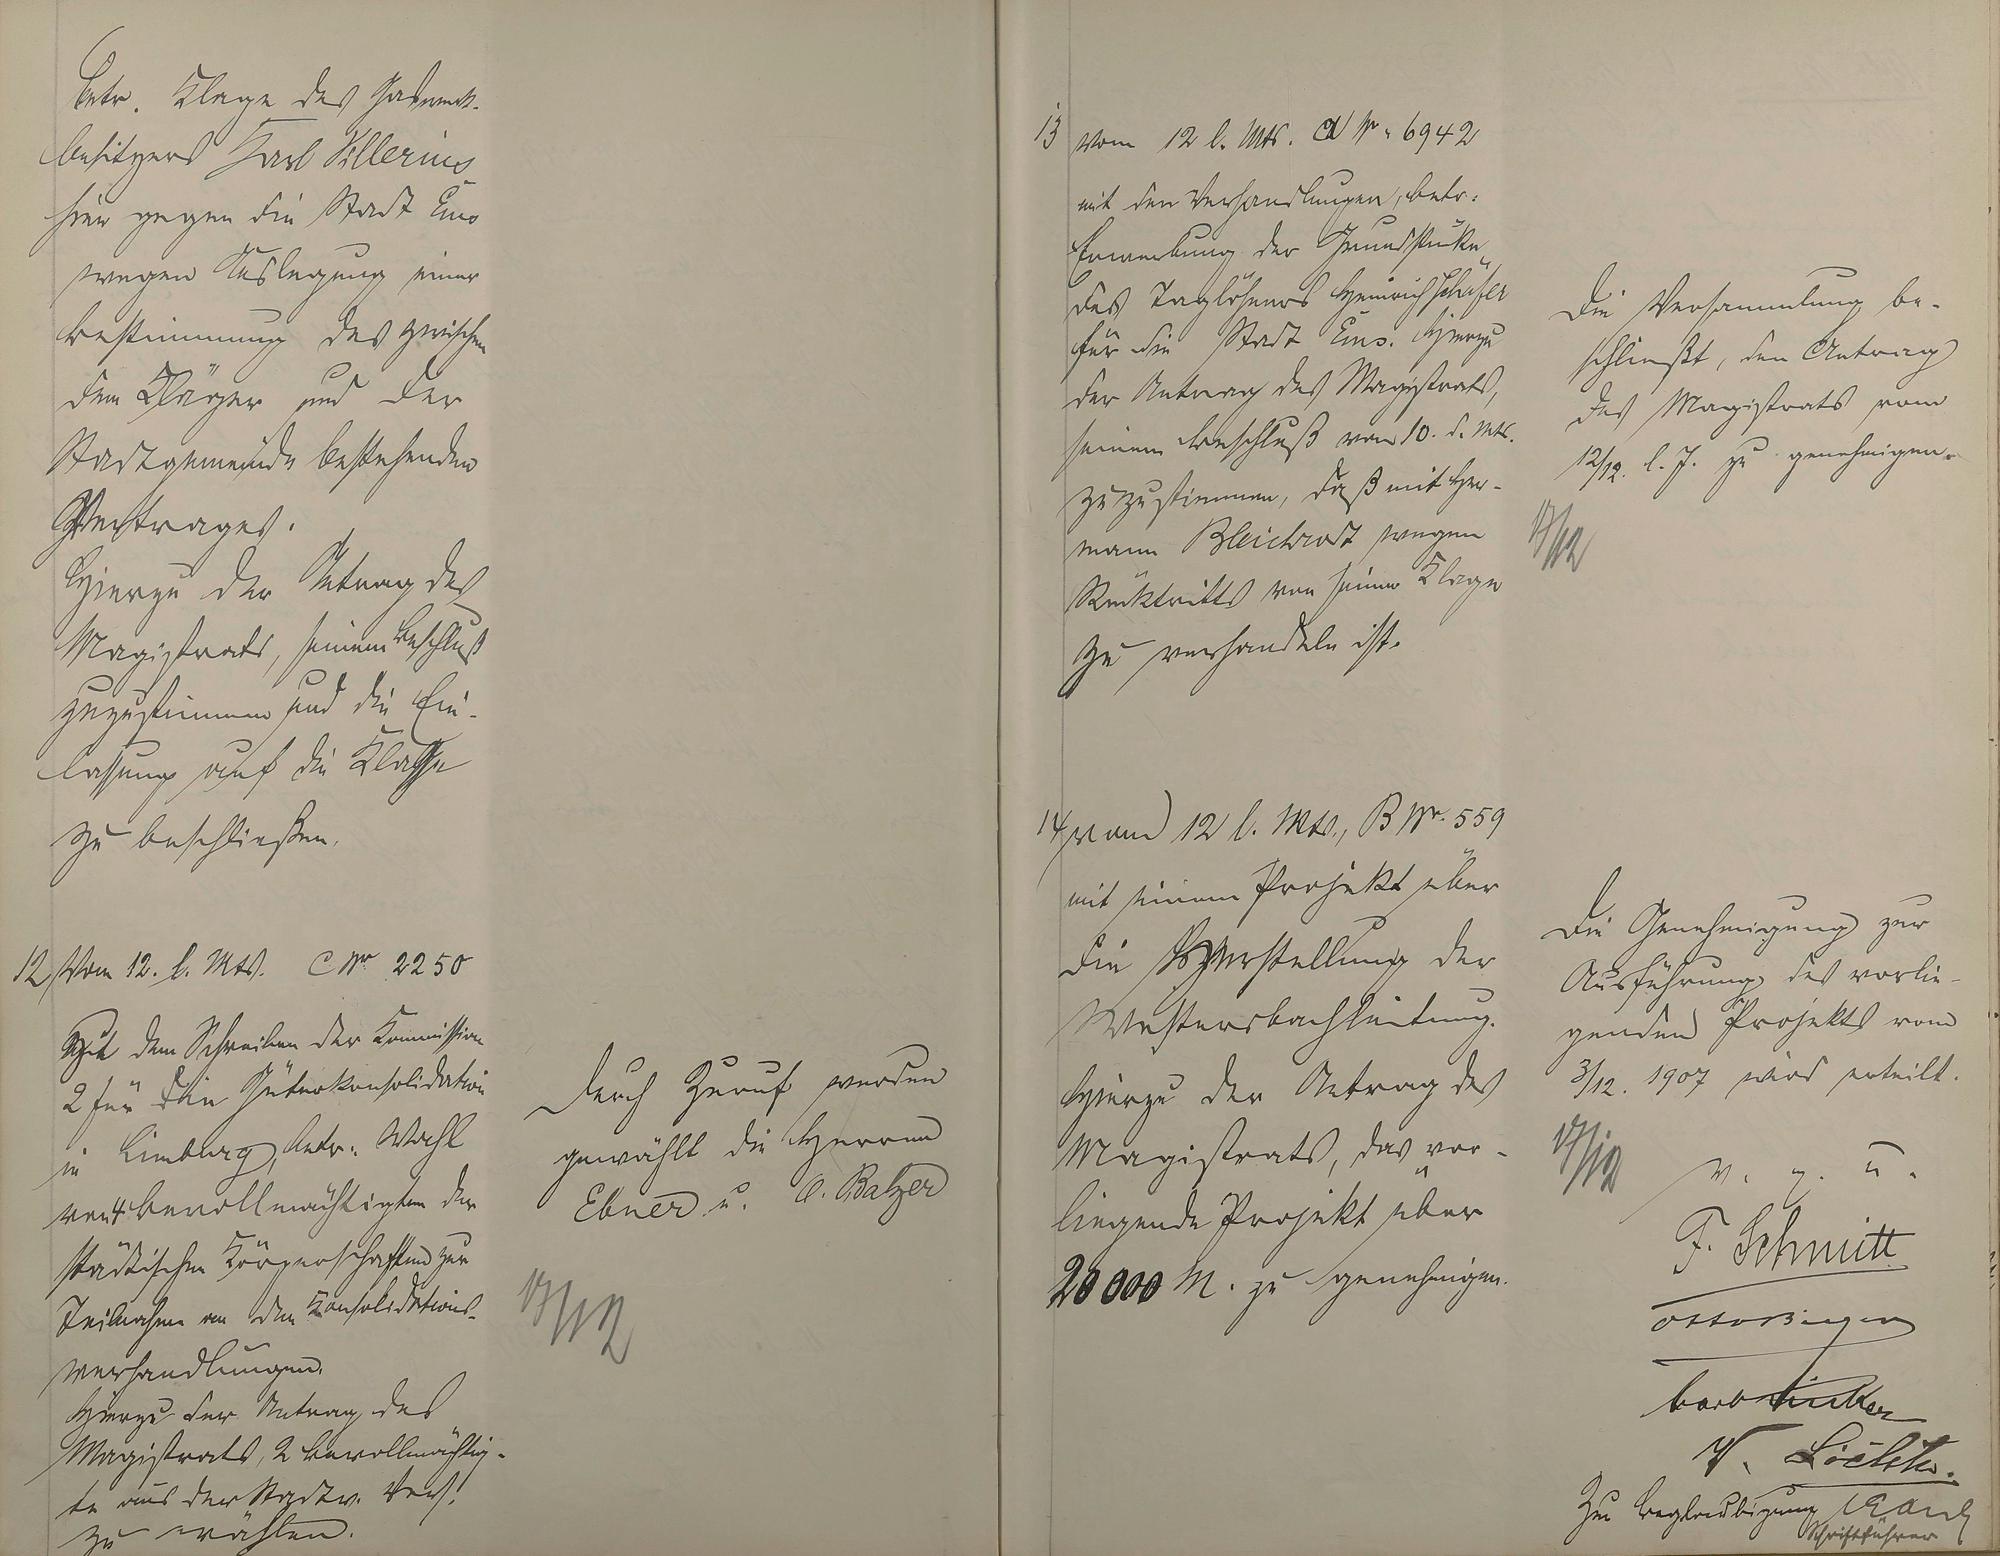 betr. Klage des Gaswerk-
besitzers Karl
hier gegen die Stadt Ems
wegen Auslegung einer
Bestimmung des zwischen
dem Kläger und der
Stadtgemeinde bestehenden
Vertrages.
Hierzu der Antrag des
Magistrats, seinem Beschluß
zuzustimmen und die Ein-
lassung auf die Klage
zu beschließen.
12, Vom 12. l. Mts. C Nr 2250
Mit dem Schreiben der Kommission
2 für die Güterkonsolidation
in Limburg, betr. Wahl
von 4 Bevollmächtigten der
städtischen Körperschaften zur
Teilnahme an den Konsolidations-
verhandlungen.
Hierzu der Antrag des
Magistrats, 2 Bevollmächtig-
te aus der Stadtv. Vers.
zu wählen.
Durch Zuruf werden
gewählt die Herren
Ebner u. C. Balzer
17/12
13 Vom 12 l. Mts. A Nr. 6942
mit den Verhandlungen, betr.
Erwerbung der Grundstücke
des Taglöhners Heinrich Schäfer
für die Stadt Ems. Hierzu
der Antrag des Magistrats,
seinem Beschluß vom 10. d. Mts.
zuzustimmen, daß mit Her-
mann Bleichrodt wegen
Rücktritts von seiner Klage
zu verhandeln ist.
Die Versammlung be-
schließt, den Antrag
des Magistrats vom
12/12. l. J. zu genehmigen.
17/12
14, vom 12 l. Mts., B Nr. 559
mit einem Projekt über
die Herstellung der
Westersbachleitung.
Hierzu der Antrag des
Magistrats, das vor-
liegende Projekt über
20 000 M. zu genehmigen.
Die Genehmigung zur
Ausführung des vorlie-
genden Projekts vom
3/12. 1907 wird erteilt.
17/12
v. g. u.
F. Schmitt
Zur Beglaubigung
Schriftführer